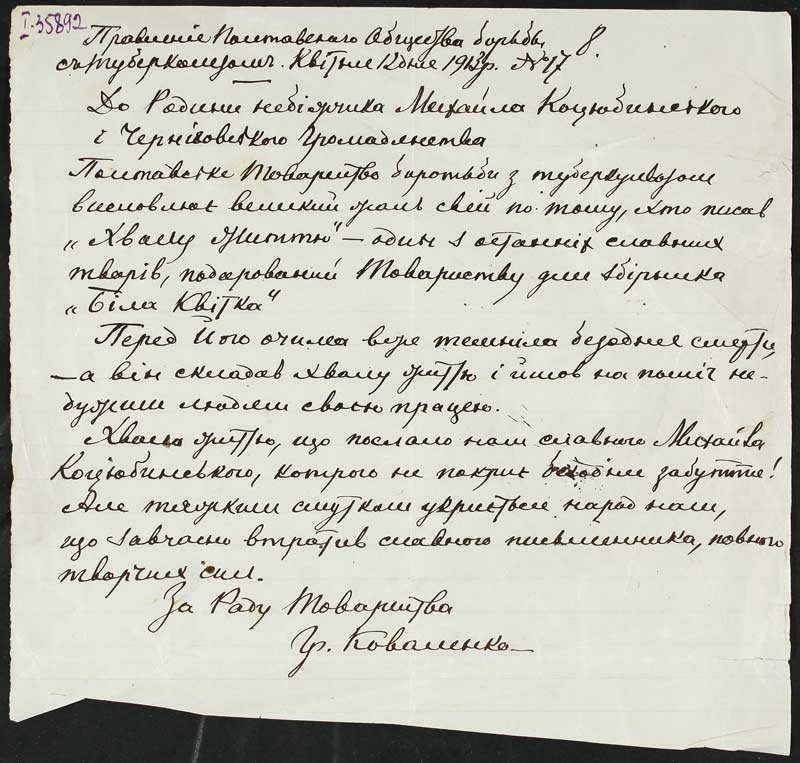 I-35892
Правление Полтавского Общества борьбы 8.
съ туберкулезомъ. Квітня 12 дня 1913 р. №17
До Родини небіжчика Михайла Коцюбинського
і Чернігівського Громадянства
Полтавське Товариство боротьби з туберкульозом
висловлює великий жаль свій по тому, хто писав
„Хвалу життю" – один з останніх славних
творів, подарований Товариству для збірника
„Біла Квітка"
Перед Його очима вже темніла безодня смерти,
– а він складав хвалу життю і йшов на поміч не-
дужим людям своєю працею.
Хвала життю, що послало нам славного Михайла
Коцюбинського, котрого не покриє забуття!
Але тяжким смутком укриться народ наш,
що завчасно втратив славного письменника, повного
творчих сил.
За Раду Товариства
Гр. Коваленко